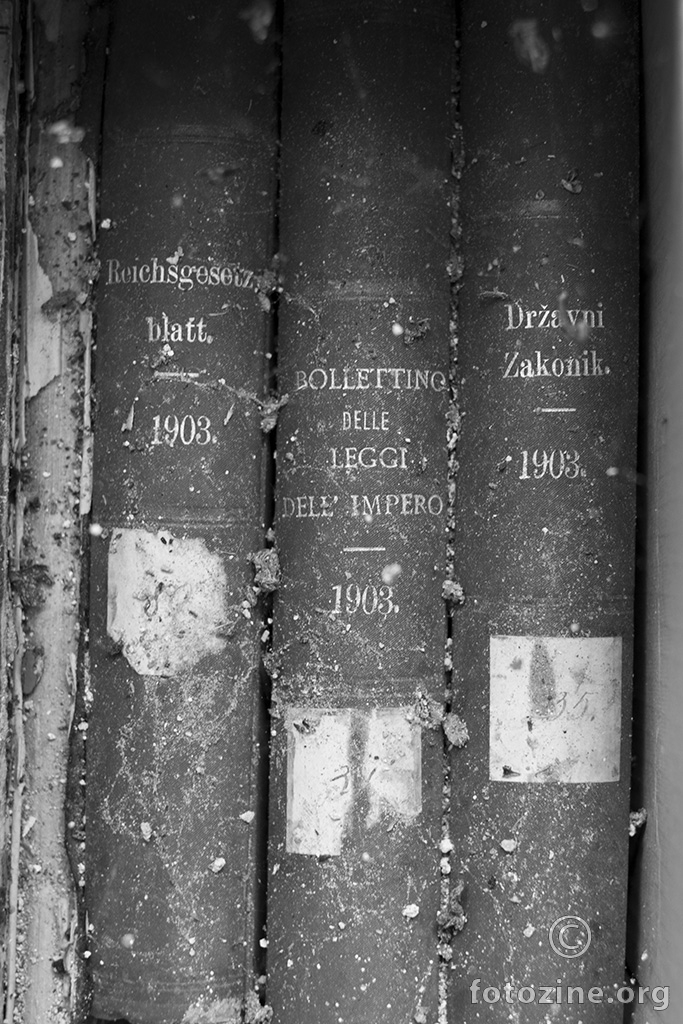 Reichsgesetz
blatt.
1903.
BOLLETTINO
DELLE
LEGGI
DELL' IMPERO
1903.
Državni
Zakonik.
1903.
35.
©
fotozine.org